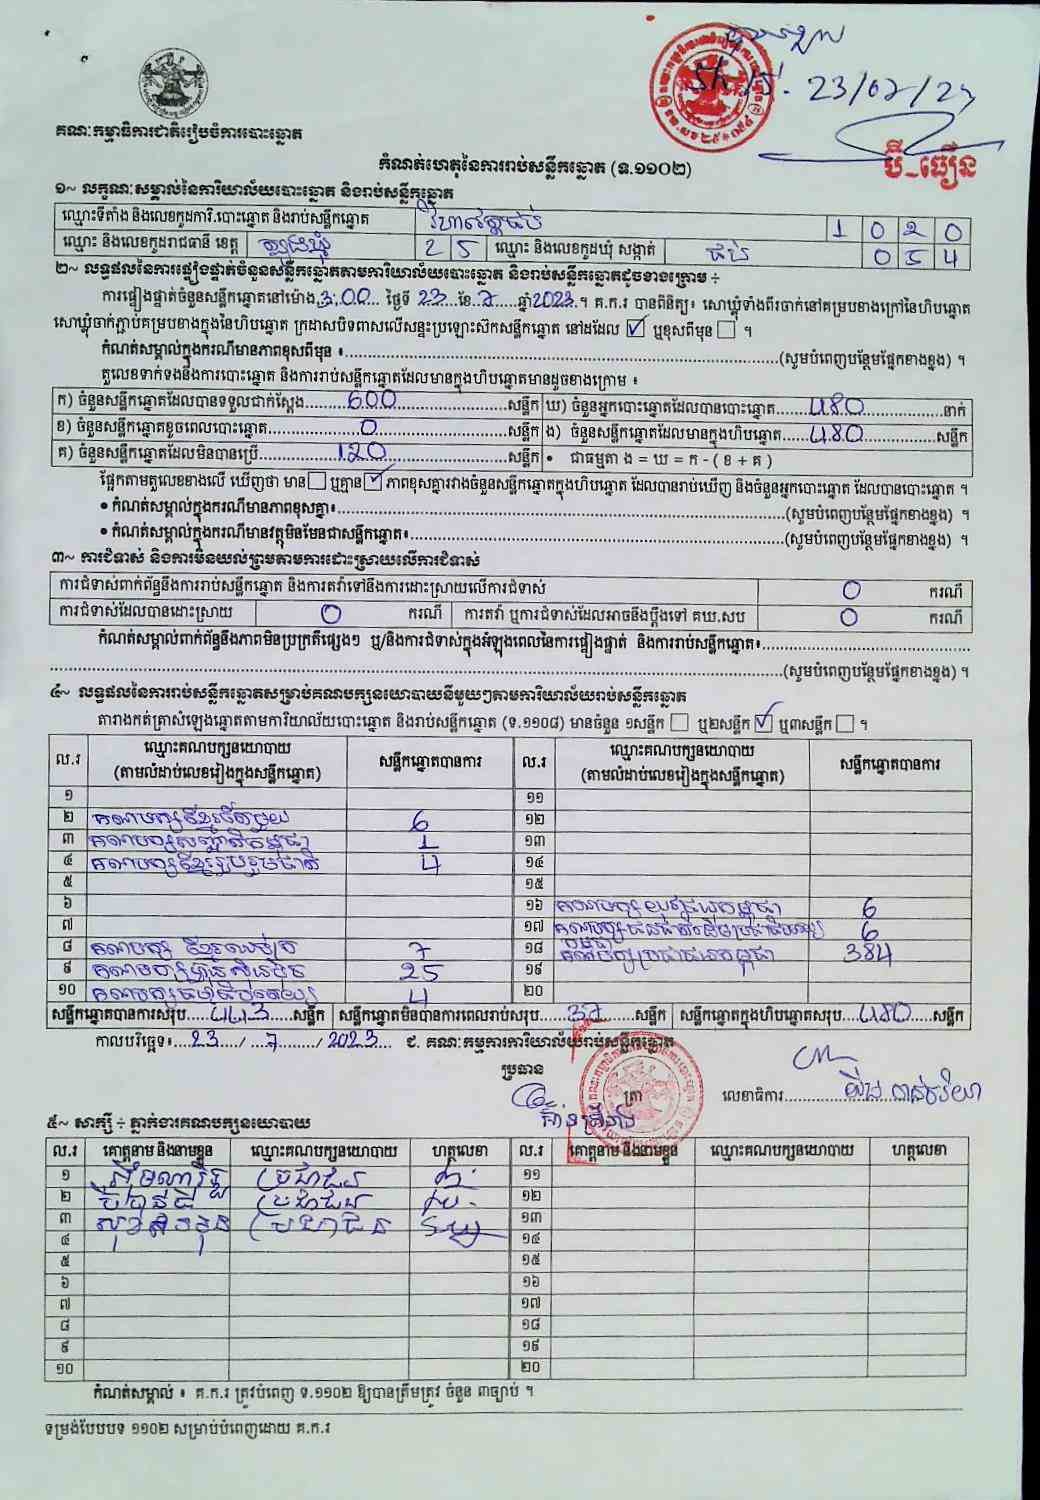 23/07/23
គណៈកម្មាធិការជាតិរៀបចំការបោះឆ្នោត
ប៊ី_ធឿន
កំណត់ហេតុនៃការរាប់សន្លឹកឆ្នោត (ទ.១១០២)
១~ លក្ខណៈសម្គាល់នៃការិយាល័យបោះឆ្នោត និងរាប់សន្លឹកឆ្នោត
ឈ្មោះទីតាំង និងលេខកូដការិ.បោះឆ្នោត និងរាប់សន្លឹកឆ្នោត 1 0 2 0
ឈ្មោះ និងលេខកូដរាជធានី ខេត្ត ត្បូងឃ្មុំ 2 5 ឈ្មោះ និងលេខកូដឃុំ សង្កាត់ ជប់ 0 5 4
២~ លទ្ធផលនៃការផ្ទៀងផ្ទាត់ចំនួនសន្លឹកឆ្នោតតាមការិយាល័យបោះឆ្នោត និងរាប់សន្លឹកឆ្នោតដូចខាងក្រោម ÷
ការផ្ទៀងផ្ទាត់ចំនួនសន្លឹកឆ្នោតនៅម៉ោង 3:00 ថ្ងៃទី 23 ខែ 7 ឆ្នាំ 2023 ។ គ.ក.រ បានពិនិត្យ៖ សោឃ្លុំទាំងពីរចាក់នៅគម្របខាងក្រៅនៃហិបឆ្នោត
សោឃ្លុំចាក់ភ្ជាប់គម្របខាងក្នុងនៃហិបឆ្នោត ក្រដាសបិទពាសលើសន្ទះប្រឡោះស៊កសន្លឹកឆ្នោត នៅដដែល ☑ ឬខុសពីមុន ☐ ។
កំណត់សម្គាល់ក្នុងករណីមានភាពខុសពីមុន ៖ (សូមបំពេញបន្ថែមផ្នែកខាងខ្នង) ។
តួលេខទាក់ទងនឹងការបោះឆ្នោត និងការរាប់សន្លឹកឆ្នោតដែលមានក្នុងហិបឆ្នោតមានដូចខាងក្រោម ៖
ក) ចំនួនសន្លឹកឆ្នោតដែលបានទទួលជាក់ស្តែង 600 សន្លឹក ឃ) ចំនួនអ្នកបោះឆ្នោតដែលបានបោះឆ្នោត 480 នាក់
ខ) ចំនួនសន្លឹកឆ្នោតខូចពេលបោះឆ្នោត 0 សន្លឹក ង) ចំនួនសន្លឹកឆ្នោតដែលមានក្នុងហិបឆ្នោត 480 សន្លឹក
គ) ចំនួនសន្លឹកឆ្នោតដែលមិនបានប្រើ 120 សន្លឹក • ជាធម្មតា ង = ឃ = ក - ( ខ + គ )
ផ្អែកតាមតួលេខខាងលើ ឃើញថា មាន ☐ ឬគ្មាន ☑ ភាពខុសគ្នារវាងចំនួនសន្លឹកឆ្នោតក្នុងហិបឆ្នោត ដែលបានរាប់ឃើញ និងចំនួនអ្នកបោះឆ្នោត ដែលបានបោះឆ្នោត ។
• កំណត់សម្គាល់ក្នុងករណីមានភាពខុសគ្នា៖ (សូមបំពេញបន្ថែមផ្នែកខាងខ្នង) ។
• កំណត់សម្គាល់ក្នុងករណីមានវត្ថុមិនមែនជាសន្លឹកឆ្នោត៖ (សូមបំពេញបន្ថែមផ្នែកខាងខ្នង) ។
៣~ ការជំទាស់ និងការមិនយល់ព្រមតាមការដោះស្រាយលើការជំទាស់
ការជំទាស់ពាក់ព័ន្ធនឹងការរាប់សន្លឹកឆ្នោត និងការតវ៉ាទៅនឹងការដោះស្រាយលើការជំទាស់ 0 ករណី
ការជំទាស់ដែលបានដោះស្រាយ 0 ករណី ការតវ៉ា ឬការជំទាស់ដែលអាចនឹងប្តឹងទៅ គឃ.សប 0 ករណី
កំណត់សម្គាល់ពាក់ព័ន្ធនឹងភាពមិនប្រក្រតីផ្សេងៗ ឬ/និងការជំទាស់ក្នុងអំឡុងពេលនៃការផ្ទៀងផ្ទាត់ និងការរាប់សន្លឹកឆ្នោត៖
(សូមបំពេញបន្ថែមផ្នែកខាងខ្នង) ។
៤~ លទ្ធផលនៃការរាប់សន្លឹកឆ្នោតសម្រាប់គណបក្សនយោបាយនីមួយៗតាមការិយាល័យរាប់សន្លឹកឆ្នោត
តារាងកត់ត្រាសំឡេងឆ្នោតតាមការិយាល័យបោះឆ្នោត និងរាប់សន្លឹកឆ្នោត (ទ.១១០៨) មានចំនួន ១សន្លឹក ☐ ឬ២សន្លឹក ☑ ឬ៣សន្លឹក ☐ ។
ល.រ ឈ្មោះគណបក្សនយោបាយ (តាមលំដាប់លេខរៀងក្នុងសន្លឹកឆ្នោត) សន្លឹកឆ្នោតបានការ ល.រ ឈ្មោះគណបក្សនយោបាយ (តាមលំដាប់លេខរៀងក្នុងសន្លឹកឆ្នោត) សន្លឹកឆ្នោតបានការ
១ ១១
២ គណបក្សខ្មែរតែមួយ 6 ១២
៣ គណបក្សសញ្ជាតិកម្ពុជា 1 ១៣
៤ គណបក្សខ្មែររួបរួមជាតិ 4 ១៤
៥ ១៥
៦ ១៦ គណបក្សយុវជនកម្ពុជា 6
៧ ១៧ 6
៨ គណបក្ស ខ្មែរឈប់ក្រ 7 ១៨ គណបក្សប្រជាជនកម្ពុជា 384
៩ គណបក្សហ្វ៊ុនស៊ិនប៉ិច 25 ១៩
១០ 4 ២០
សន្លឹកឆ្នោតបានការសរុប 443 សន្លឹក សន្លឹកឆ្នោតមិនបានការពេលរាប់សរុប 37 សន្លឹក សន្លឹកឆ្នោតក្នុងហិបឆ្នោតសរុប 480 សន្លឹក
កាលបរិច្ឆេទ៖ 23 / 7 / 2023 ជ. គណៈកម្មការការិយាល័យរាប់សន្លឹកឆ្នោត
ប្រធាន ត្រា លេខាធិការ
៥~ សាក្សី ÷ ភ្នាក់ងារគណបក្សនយោបាយ
ល.រ គោត្តនាម និងនាមខ្លួន ឈ្មោះគណបក្សនយោបាយ ហត្ថលេខា ល.រ គោត្តនាម និងនាមខ្លួន ឈ្មោះគណបក្សនយោបាយ ហត្ថលេខា
១ ប្រជាជន ១១
២ ប្រជាជន ១២
៣ ប្រជាជន ១៣
៤ ១៤
៥ ១៥
៦ ១៦
៧ ១៧
៨ ១៨
៩ ១៩
១០ ២០
កំណត់សម្គាល់ ៖ គ.ក.រ ត្រូវបំពេញ ទ.១១០២ ឱ្យបានត្រឹមត្រូវ ចំនួន ៣ច្បាប់ ។
ទម្រង់បែបបទ ១១០២ សម្រាប់បំពេញដោយ គ.ក.រ